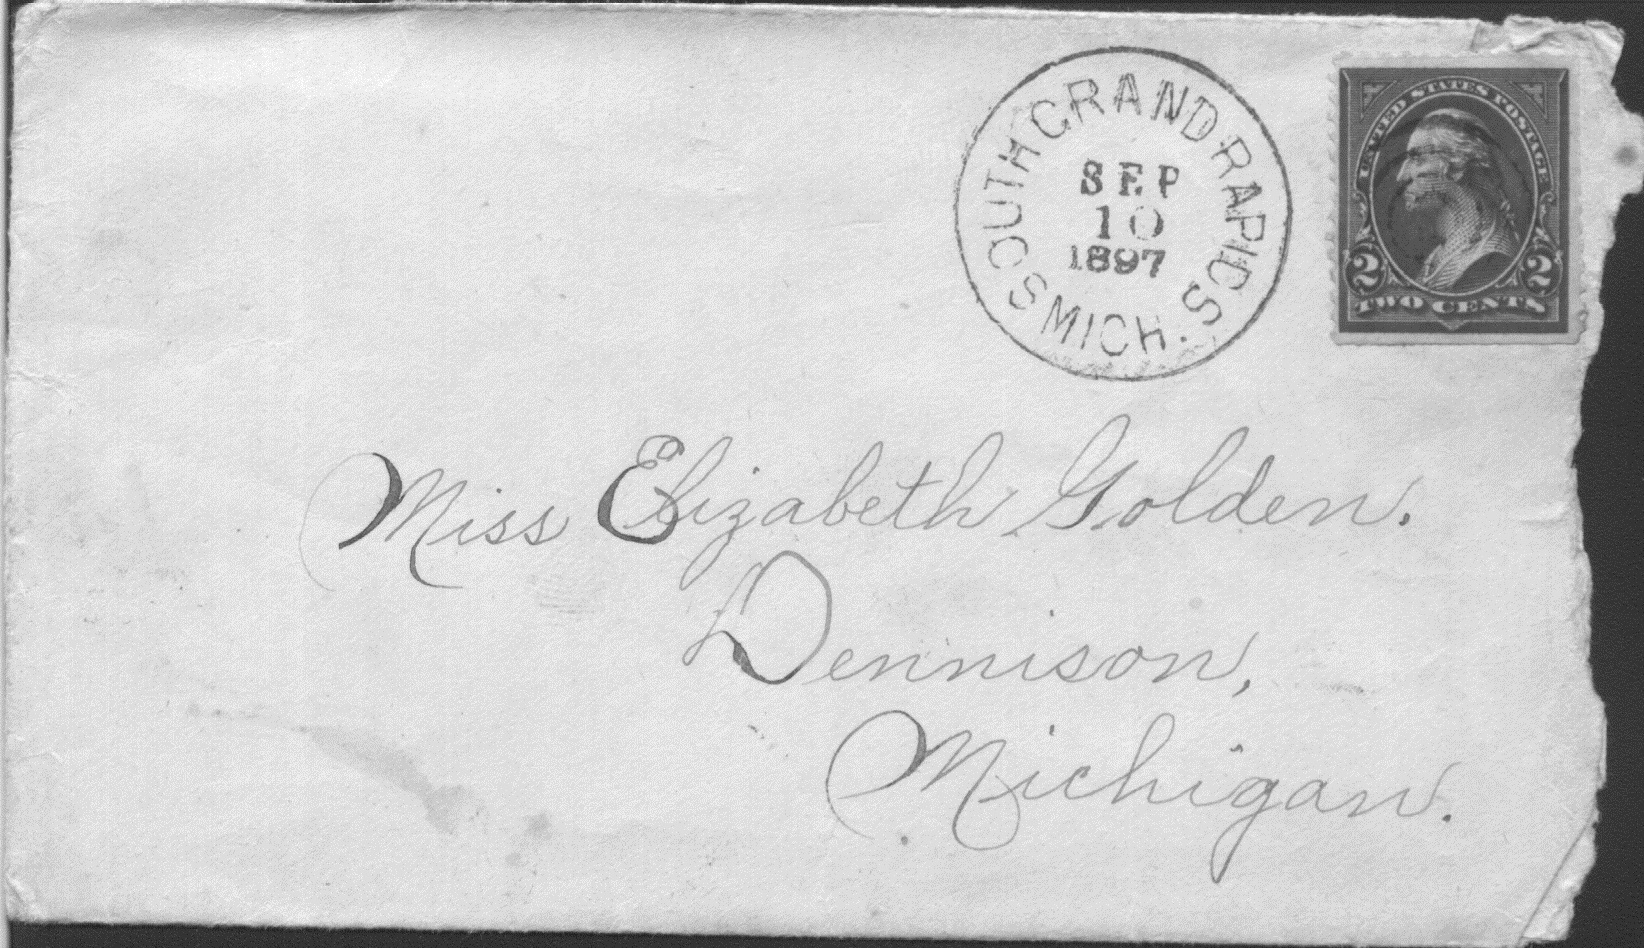 SOUTH GRAND RAPIDS
MICH.
SEP
10
1897
UNITED STATES POSTAGE
2 2
TWO CENTS
Miss Elizabeth Golden.
Dennison,
Michigan.